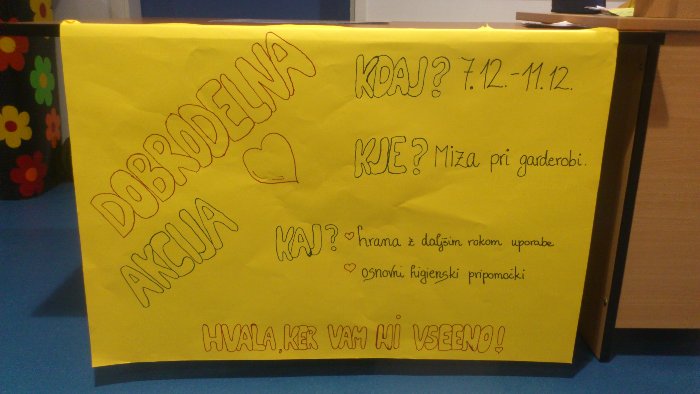 DOBRODELNA
AKCIJA
KDAJ? 7.12.-11.12.
KJE? Miza pri garderobi.
KAJ? hrana z daljšim rokom uporabe
osnovni higienski pripomočki
HVALA, KER VAM NI VSEENO!